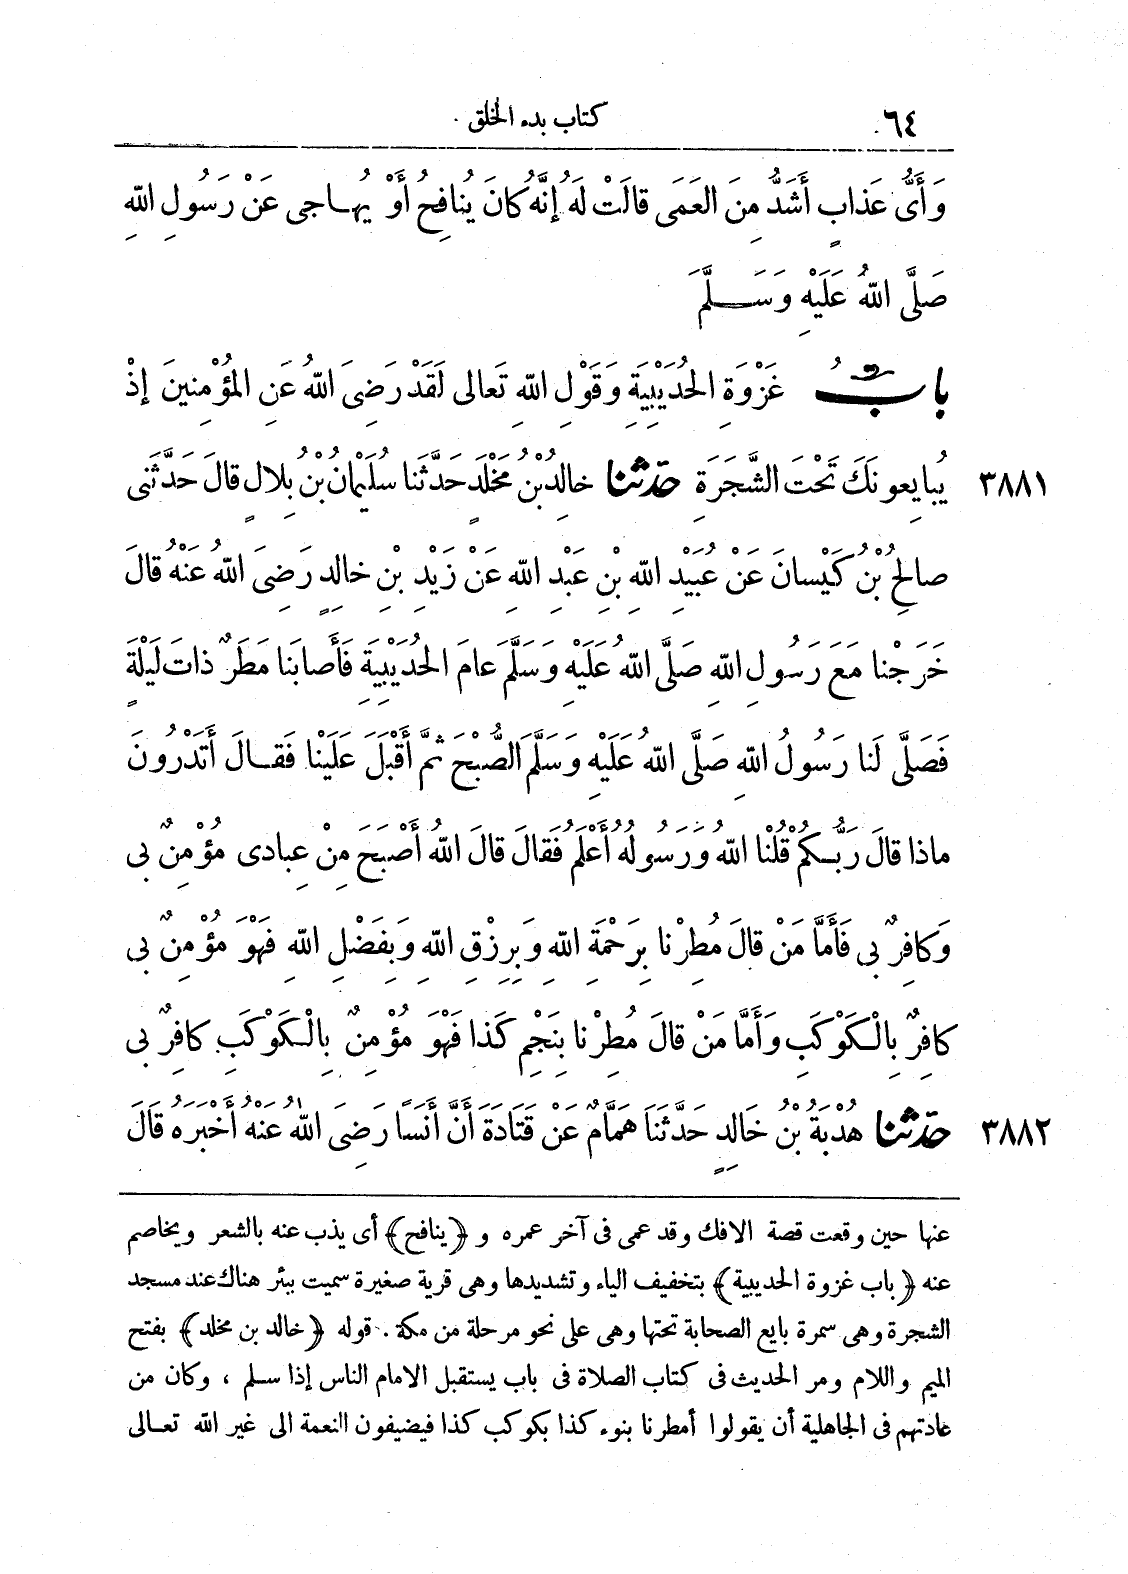 ٦٤
كتاب بدء الخلق
وَأَىُّ عَذَابٍ أَشَدُّ مِنَ العَمَى قالَتْ لَهُ إِنَّهُ كانَ يُنافِحُ أَوْ يُهـاجى عَنْ رَسُولِ اللهِ
صَلَّى اللهُ عَلَيْهِ وَسَـــلَّمَ
بابُ غَزْوَةِ الحُدَيْبِيَةِ وَقَوْلِ اللهِ تَعالى لَقَدْ رَضِىَ اللهُ عَنِ المُؤْمِنينَ إِذْ
٣٨٨١ يُبايِعونَكَ تَحْتَ الشَّجَرَةِ حدّثنا خالِدُ بْنُ مَخْلَدٍ حَدَّثَنا سُلَيْمانُ بْنُ بِلالٍ قالَ حَدَّثَنى
صالحُ بْنُ كَيْسانَ عَنْ عُبَيْدِ اللهِ بْنِ عَبْدِ اللهِ عَنْ زَيْدِ بْنِ خالِدٍ رَضِىَ اللهُ عَنْهُ قالَ
خَرَجْنا مَعَ رَسُولِ اللهِ صَلَّى اللهُ عَلَيْهِ وَسَلَّمَ عامَ الحُدَيْبِيَةِ فَأَصابَنا مَطَرٌ ذاتَ لَيْلَةٍ
فَصَلَّى لَنا رَسُولُ اللهِ صَلَّى اللهُ عَلَيْهِ وَسَلَّمَ الصُّبْحَ ثمَّ أَقْبَلَ عَلَيْنا فَقــالَ أَتَدْرُونَ
ماذا قالَ رَبُّـكُمْ قُلْنا اللهُ وَرَسولُهُ أَعْلَمُ فَقالَ قالَ اللهُ أَصْبَحَ مِنْ عِبادى مُؤْمِنٌ بى
وَكافِرٌ بى فَأَمَّا مَنْ قالَ مُطِرْنا بِرَحْمَةِ اللهِ وَبِرِزْقِ اللهِ وَبِفَضْلِ اللهِ فَهْوَ مُؤْمِنٌ بى
كافِرٌ بِالْـكَوْكَبِ وَأَمَّا مَنْ قالَ مُطِرْنا بِنَجْمِ كَذا فَهْوَ مُؤْمِنٌ بِالْـكَوْكَبِ كافِرٌ بى
٣٨٨٢ حدّثنا هُدْبَةُ بْنُ خَالِدٍ حَدَّثَنَا هَمَّامٌ عَنْ قَتَادَةَ أَنَّ أَنَسًا رَضِىَ اللهُ عَنْهُ أَخْبَرَهُ قَالَ
عنها حين وقعت قصة الافك وقد عمى فى آخر عمره و ﴿ينافح﴾ أى يذب عنه بالشعر ويخاصم
عنه ﴿باب غزوة الحديبية﴾ بتخفيف الياء وتشديدها وهى قرية صغيرة سميت ببئر هناك عند مسجد
الشجرة وهى سمرة بايع الصحابة تحتها وهى على نحو مرحلة من مكة. قوله ﴿خالد بن مخلد﴾ بفتح
الميم واللام ومر الحديث فى كتاب الصلاة فى باب يستقبل الامام الناس إذا سـلم ، وكان من
عادتهم فى الجاهلية أن يقولوا أمطرنا بنوء كذا بكوكب كذا فيضيفون النعمة الى غير الله تعـالى